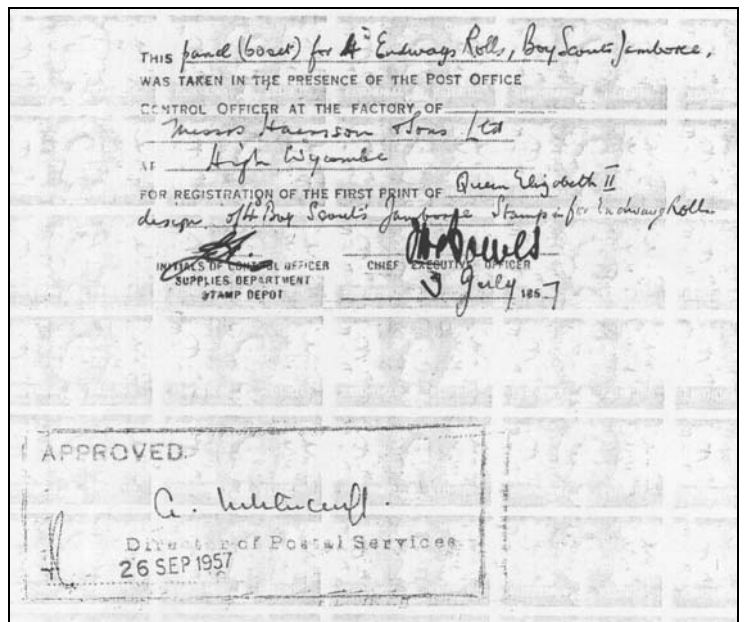 THIS panel (60 set) for 4d Endways Rolls, Boy Scouts Jamboree,
WAS TAKEN IN THE PRESENCE OF THE POST OFFICE
CONTROL OFFICER AT THE FACTORY OF
Messrs Harrison & Sons Ltd
AT High Wycombe
FOR REGISTRATION OF THE FIRST PRINT OF Queen Elizabeth II
design of 4d Boy Scouts Jamboree Stamps for Endways Rolls
INITIALS OF CONTROL OFFICER
SUPPLIES DEPARTMENT
STAMP DEPOT
CHIEF EXECUTIVE OFFICER
3 July 1957
APPROVED.
Director of Postal Services
26 SEP 1957